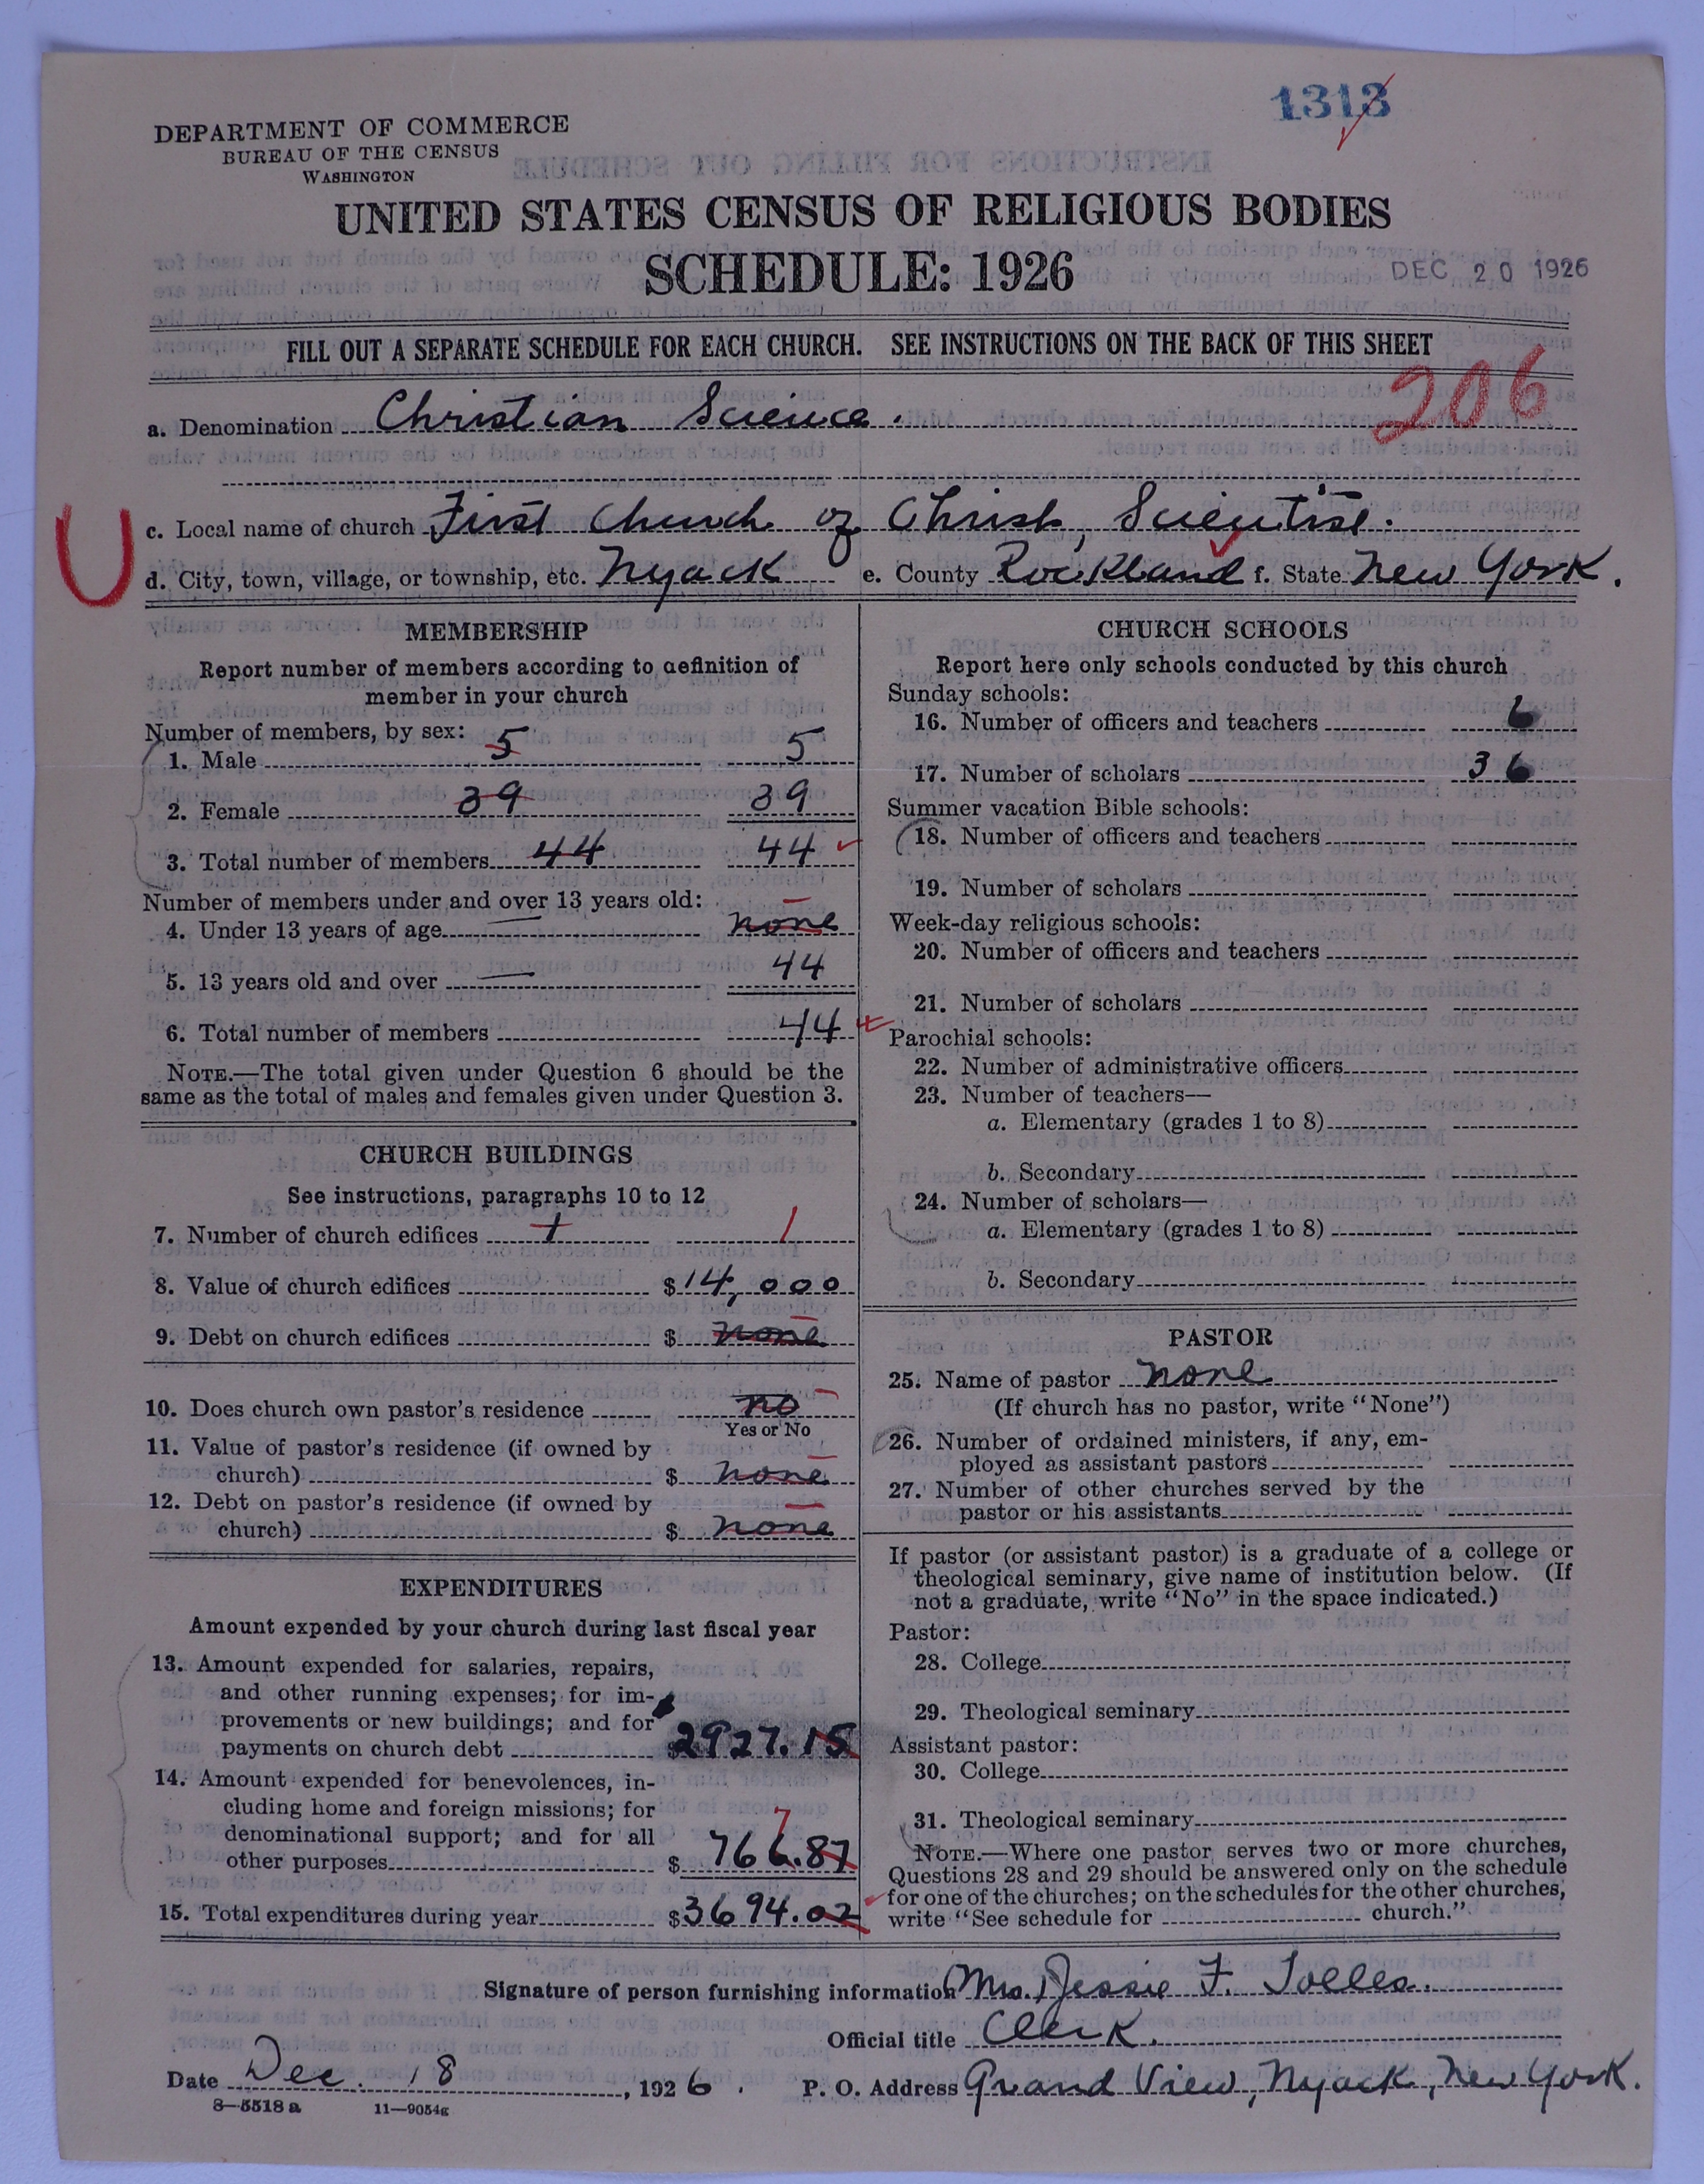 1313
DEPARTMENT OF COMMERCE
BUREAU OF THE CENSUS
WASHINGTON
UNITED STATES CENSUS OF RELIGIOUS BODIES
SCHEDULE: 1926
DEC 20 1926
FILL OUT A SEPARATE SCHEDULE FOR EACH CHURCH. SEE INSTRUCTIONS ON THE BACK OF THIS SHEET
206
a. Denomination Christian Science.
U
c. Local name of church First Church of Christ, Scientist.
d. City, town, village, or township, etc. Nyack e. County Rockland f. State New York.
MEMBERSHIP
Report number of members according to definition of
member in your church
Number of members, by sex:
1. Male 5 5
2. Female 39 39
3. Total number of members 44 44
Number of members under and over 13 years old:
4. Under 13 years of age — none
5. 13 years old and over — 44
6. Total number of members 44
NOTE.—The total given under Question 6 should be the
same as the total of males and females given under Question 3.
CHURCH BUILDINGS
See instructions, paragraphs 10 to 12
7. Number of church edifices 1 1
8. Value of church edifices $14,000
9. Debt on church edifices $ none
10. Does church own pastor's residence no
Yes or No
11. Value of pastor's residence (if owned by
church) $ none
12. Debt on pastor's residence (if owned by
church) $ none
EXPENDITURES
Amount expended by your church during last fiscal year
13. Amount expended for salaries, repairs,
and other running expenses; for im-
provements or new buildings; and for
payments on church debt $2927.15
14. Amount expended for benevolences, in-
cluding home and foreign missions; for
denominational support; and for all 7
other purposes $ 766.87
15. Total expenditures during year $3694.02
CHURCH SCHOOLS
Report here only schools conducted by this church
Sunday schools:
16. Number of officers and teachers 6
17. Number of scholars 36
Summer vacation Bible schools:
18. Number of officers and teachers
19. Number of scholars
Week-day religious schools:
20. Number of officers and teachers
21. Number of scholars
Parochial schools:
22. Number of administrative officers
23. Number of teachers—
a. Elementary (grades 1 to 8)
b. Secondary
24. Number of scholars—
a. Elementary (grades 1 to 8)
b. Secondary
PASTOR
25. Name of pastor none
(If church has no pastor, write "None")
26. Number of ordained ministers, if any, em-
ployed as assistant pastors
27. Number of other churches served by the
pastor or his assistants
If pastor (or assistant pastor) is a graduate of a college or
theological seminary, give name of institution below. (If
not a graduate, write "No" in the space indicated.)
Pastor:
28. College
29. Theological seminary
Assistant pastor:
30. College
31. Theological seminary
NOTE.—Where one pastor serves two or more churches,
Questions 28 and 29 should be answered only on the schedule
for one of the churches; on the schedules for the other churches,
write "See schedule for church."
Signature of person furnishing information (Mrs.) Jessie F. Tolles.
Official title Clerk.
Date Dec. 18, 1926. P. O. Address Grand View, Nyack, New York.
8—5518 a 11—9054g